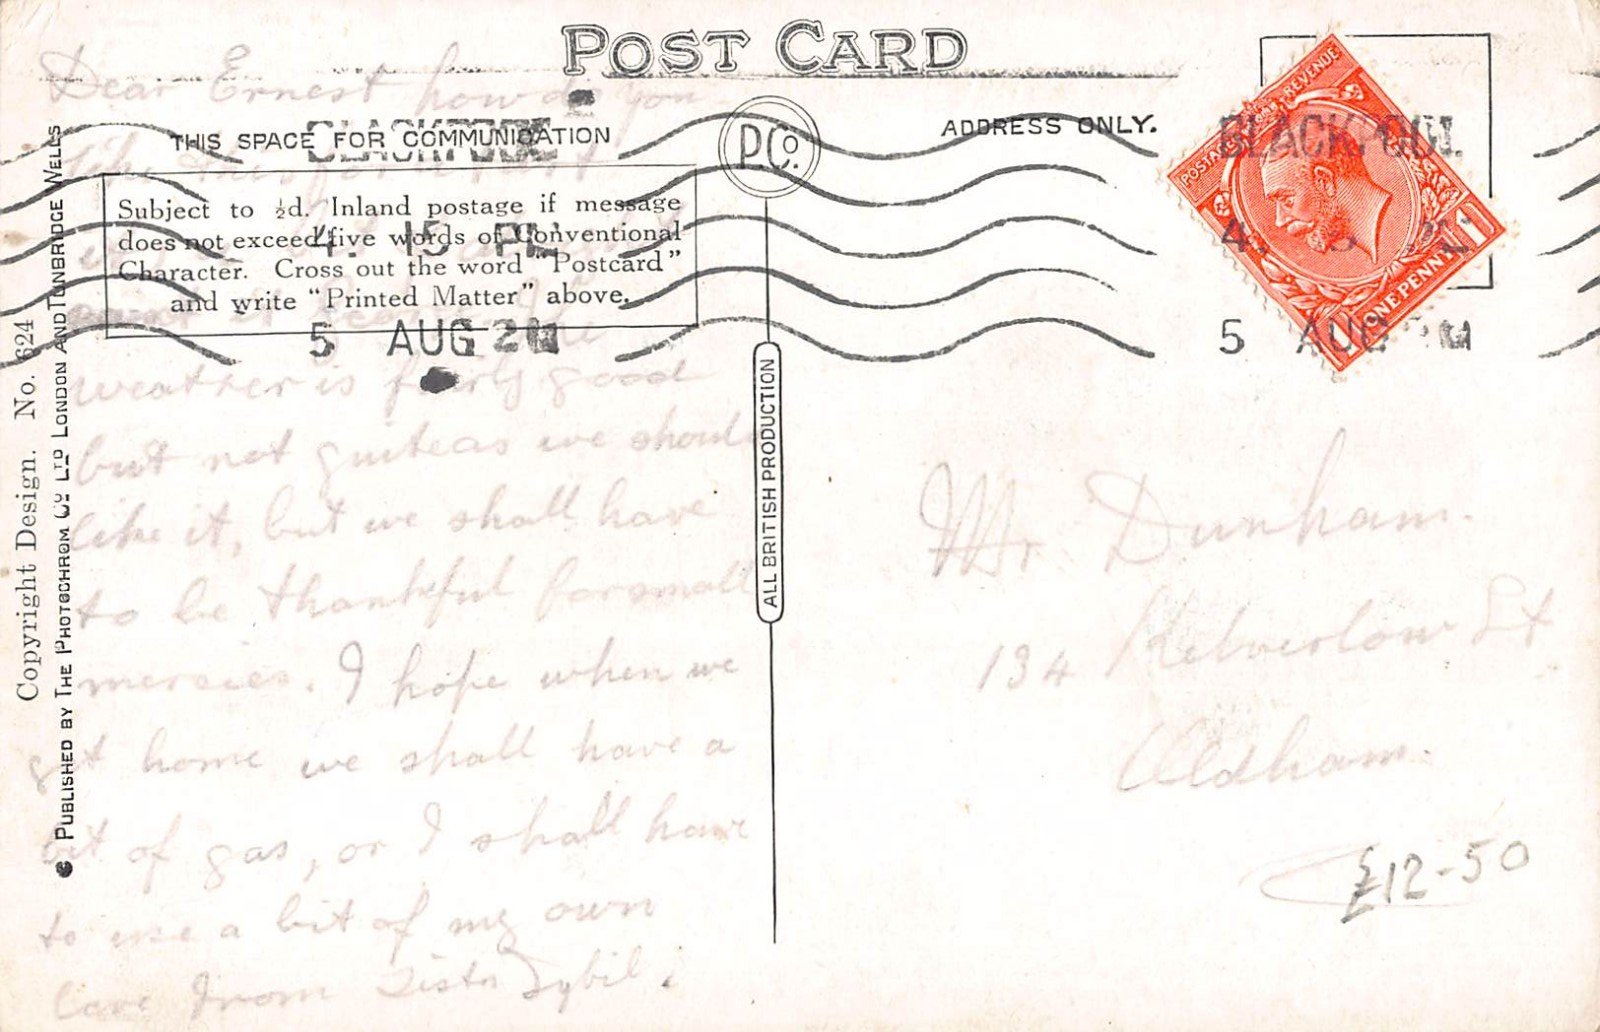 POST CARD
THIS SPACE FOR COMMUNICATION
ADDRESS ONLY.
P.Co.
Subject to ½d. Inland postage if message
does not exceed five words of Conventional
Character. Cross out the word "Postcard"
and write "Printed Matter" above.
BLACKPOOL
4. 15 PM
5 AUG 21
BLACKPOOL
4.
5 AUG
POSTAGE REVENUE
ONE PENNY
1
1
Copyright Design. No. 624
PUBLISHED BY THE PHOTOCHROM CO LTD LONDON AND TUNBRIDGE WELLS
ALL BRITISH PRODUCTION
Dear Ernest how do you
like this for a
weather is fairly good
but not quite as we should
like it, but we shall have
to be thankful for small
mercies. I hope when we
get home we shall have a
bit of gas, or I shall have
to use a bit of my own
love from Sister Sybil.
Mr Dunham.
134 St
Oldham.
£12-50